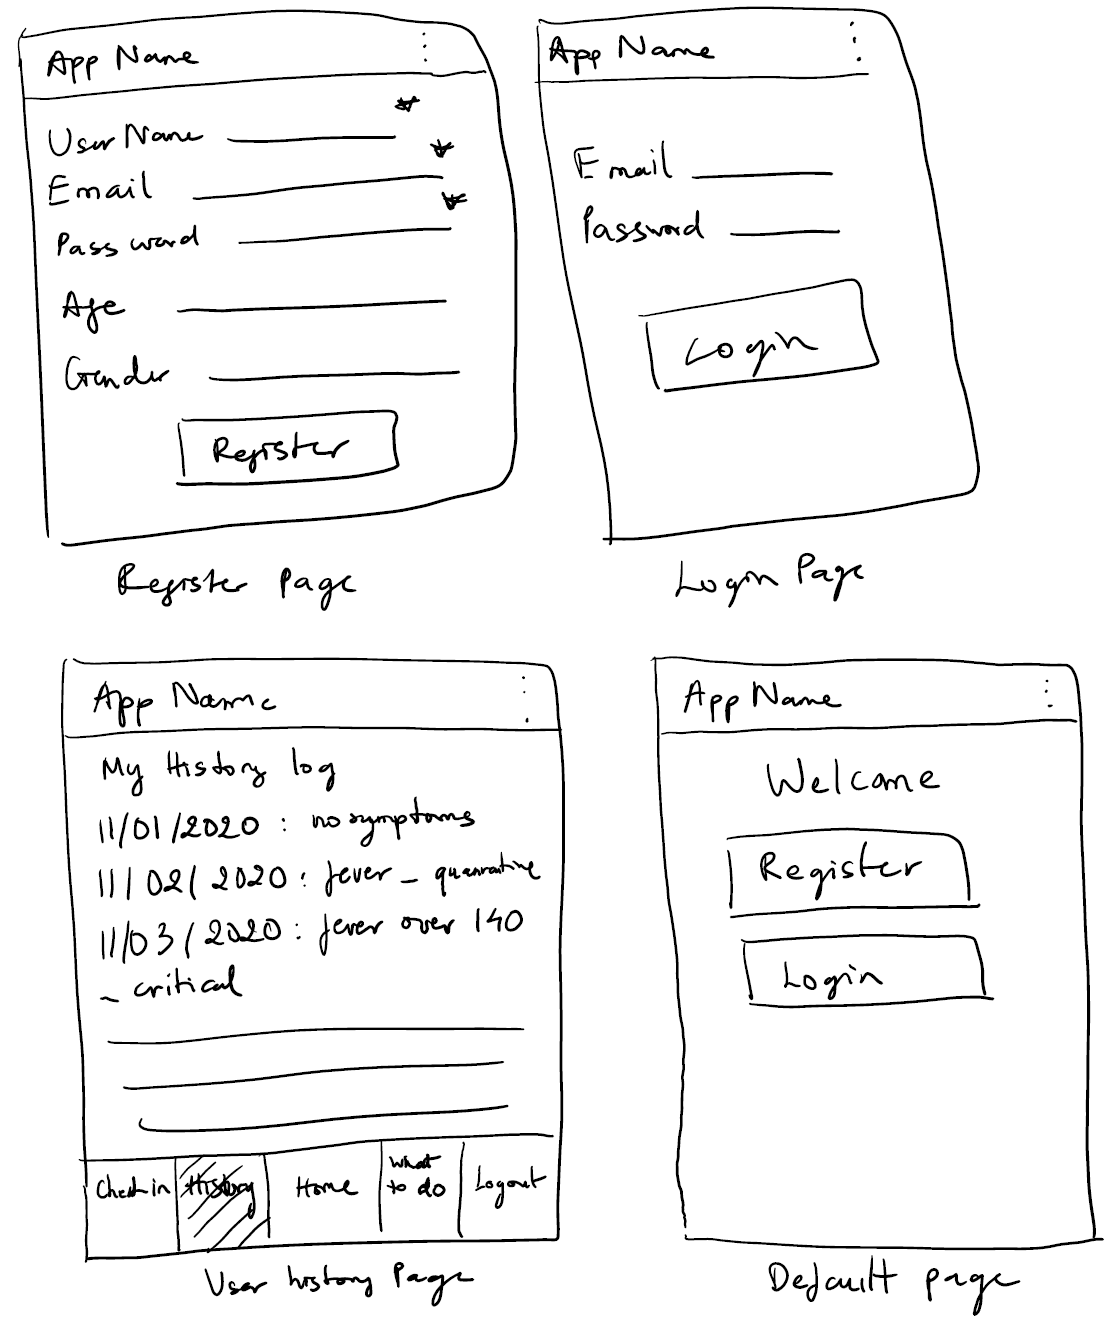 App Name
User Name
Email
Password
Age
Gender
Register
Register Page
App Name
Email
Password
Login
Login Page
App Name
My History log
11/01/2020 : no symptoms
11/02/2020 : fever - quarantine
11/03/2020 : fever over 140
- critical
Check in
History
Home
What
to do
Logout
User history Page
App Name
Welcome
Register
Login
Default page